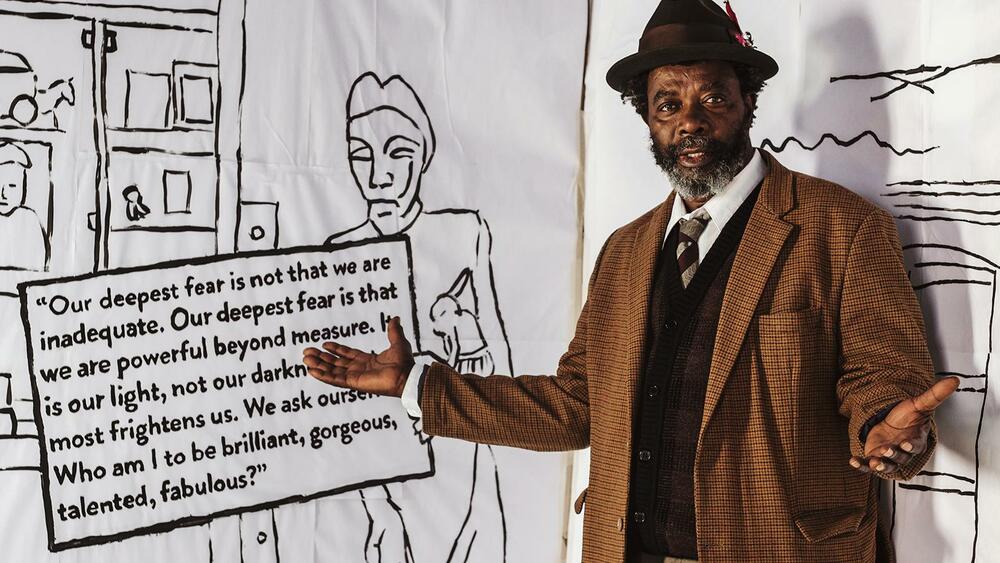 “Our deepest fear is not that we are
inadequate. Our deepest fear is that
we are powerful beyond measure.
is our light, not our
most frightens us. We ask
Who am I to be brilliant, gorgeous,
talented, fabulous?”